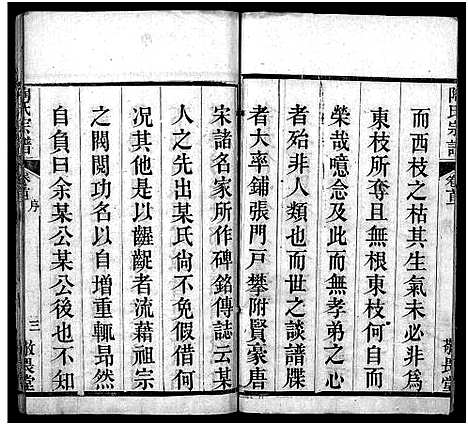 陶氏宗譜
卷首
敬畏堂
而西枝之枯其生氣未必非為
東枝所奪且無根東枝何自而
榮哉噫念及此而無孝弟之心
者殆非人類也而世之談譜牒
者大率鋪張門戸攀附賢豪唐
宋諸名家所作碑銘傳誌云某
人之先出某氏尙不免假借何
況其他是以齷齪者流藉祖宗
之閥閱功名以自增重輒昂然
自負曰余某公某公後也不知
陶氏宗譜
卷首
序
三
敬畏堂